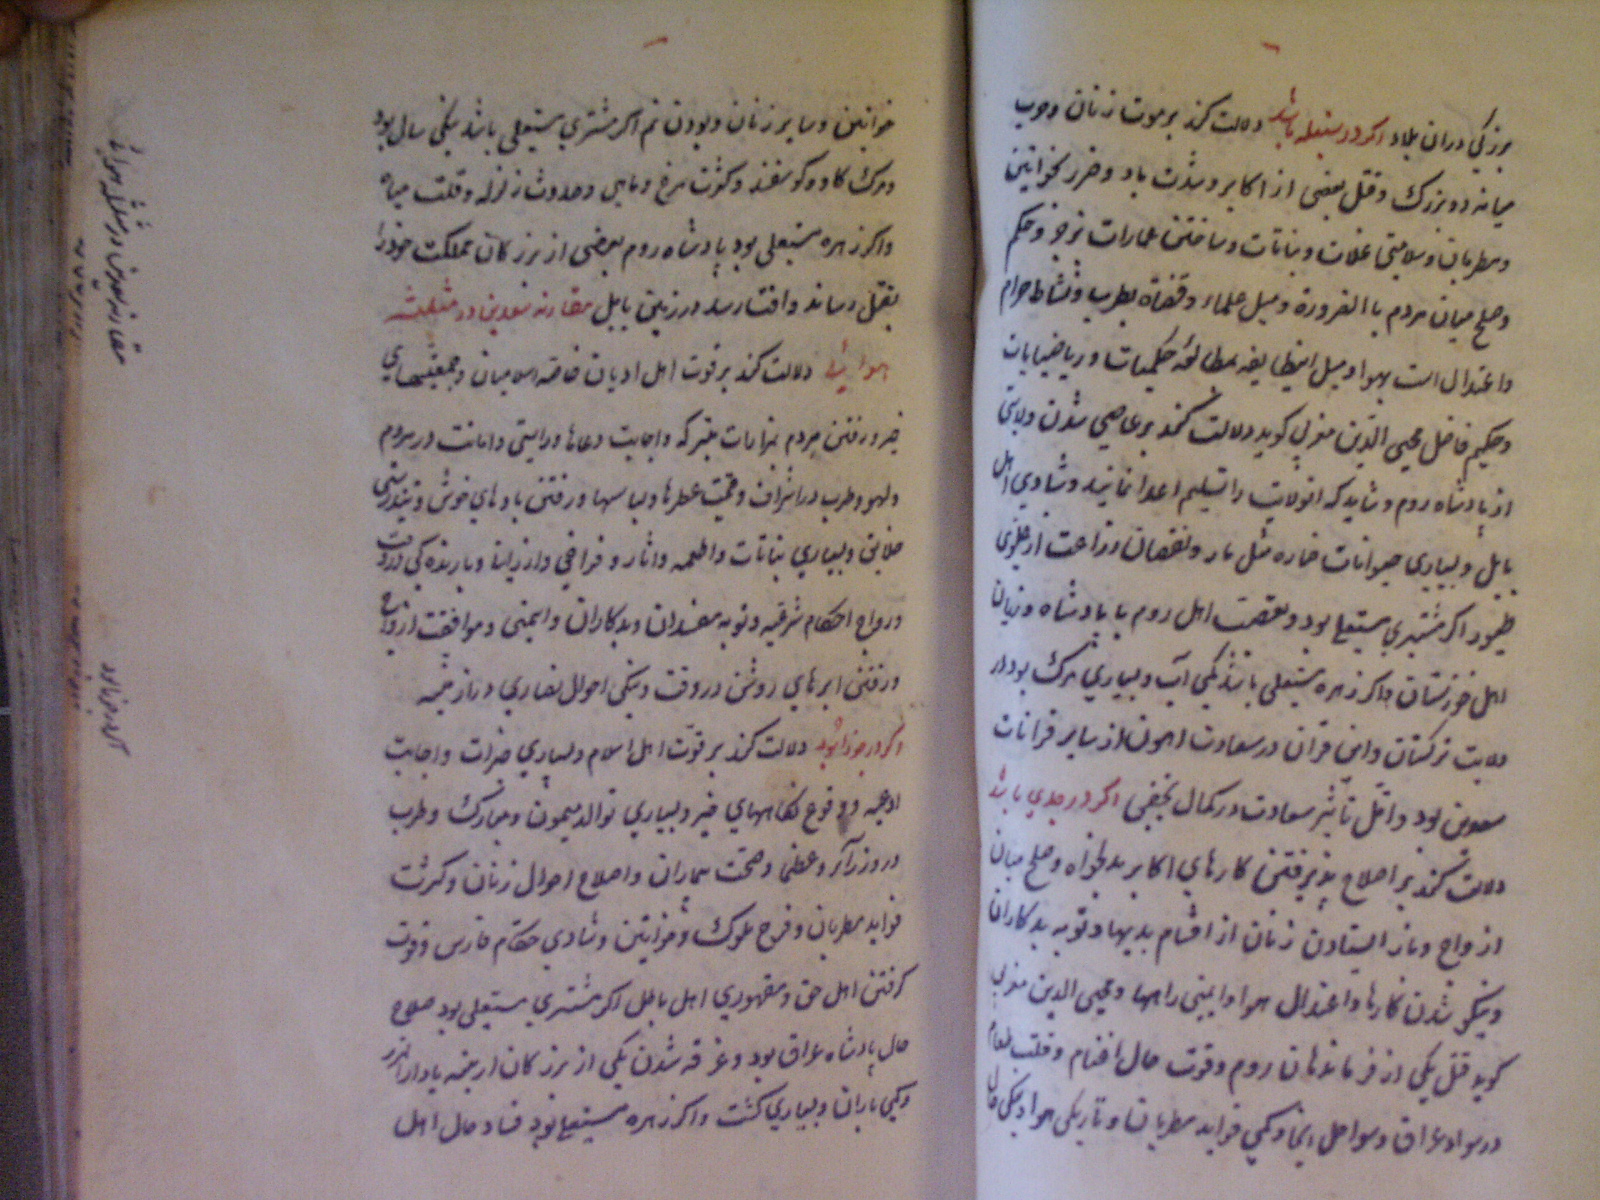 بزرگی دران بلاد اکر در سنبله باشد دلالت کند بر موت زنان و حرب
میانه دو بزرک و قتل بعضی از اکابر و شدت باد و ضرر بخواتین
و مطربان و سلامتی غلات و نباتات و ساختن عمارات
و صلح میان مردم با الضرورة و میل علماء و قضاة بطرب و نشاط حرام
و اعتدال است بهوا و میل اینطایفه بمطالعه حکمیات و ریاضیات
و حکیم فاضل محیی الدین مغربی کوید دلالت کند بر عاصی شدن ولایتی
از پادشاه روم و شاید که انولایت را تسلیم اعدا نمایند و شادی اهل
بابل و بسیاری حیوانات ضاره مثل مار و نقصان زراعت از
طیور اکر مشتری مستعلی بود و تعصب اهل روم با پادشاه و زیان
اهل خوزستان و اکر زهره مستعلی باشد کمی آب و بسیاری مرک بود در
ولایت ترکستان و این قران در سعادت اهون از سایر قرانات
سعدین بود و اقل تأثیر سعادت در کمال نحسی اکر در جدی باشد
دلالت کند بر اصلاح پذیرفتن کارهای اکابر بدلخواه و صلح میان
ازواج و باز ایستادن زنان از اقسام بدیها و توبه بدکاران
و نیکو شدن کارها و اعتدال هوا و ایمنی راهها و محیی الدین مغربی
کوید قتل یکی از فرماندهان روم و قوت حال اغنام و قلت طعام
در سواد عراق و سواحل و کمی فواید مطربان و تاریکی هوا و نیکی حال
خواتین و سایر زنان و بودن نم اکر مشتری مستعلی باشد نیکی سال بود
و مرک کاو و کوسفند و کثرت مرغ و ماهی و حدوث زلزله و قلت میاه
و اکر زهره مستعلی بود پادشاه روم بعضی از بزرکان مملکت خود را
بقتل رساند و افتد در زمین بابل مقارنه سعدین در مثلثه
هوائی دلالت کند بر قوت اهل ادیان خاصه اسلامیان و جمعیتهای
خیر و رفتن مردم بزیارات متبرکه و اجابت دعاها و راستی و امانت در مردم
و لهو و طرب در اشراف و قیمت عطرها و لباسها و رفتن بادهای خوش و تندرستی
خلایق و بسیاری نباتات و اطعمه و اثمار و فراخی و ارزانی و بارندکی در وقت
و رواج احکام شرعیه و توبه مفسدان و بدکاران و ایمنی و موافقت ازواج
و رفتن ابرهای روشن در وقت و نیکی احوال نصاری و نازنینه
اکر در جوزا بود دلالت کند بر قوت اهل اسلام و بسیاری خیرات و اجابت
ادعیه و وقوع نکاحهای خیر و بسیاری توالد میمون و مبارک و طرب
در وزرآء و عظما و صحت بیماران و اصلاح احوال زنان و کثرت
فواید مطربان و فرح ملوک و خواتین و شادی حکام فارس و قوت
کرفتن اهل حق و مقهوری اهل باطل اکر مشتری مستعلی بود صلاح
حال پادشاه عراق بود و غرقه شدن یکی از بزرکان ارمنیه
و کمی باران و بسیاری کشت و اکر زهره مستعلی بود فساد حال اهل
مقارنه سعدین در مثلثه هوائی
اکر در جوزا بود